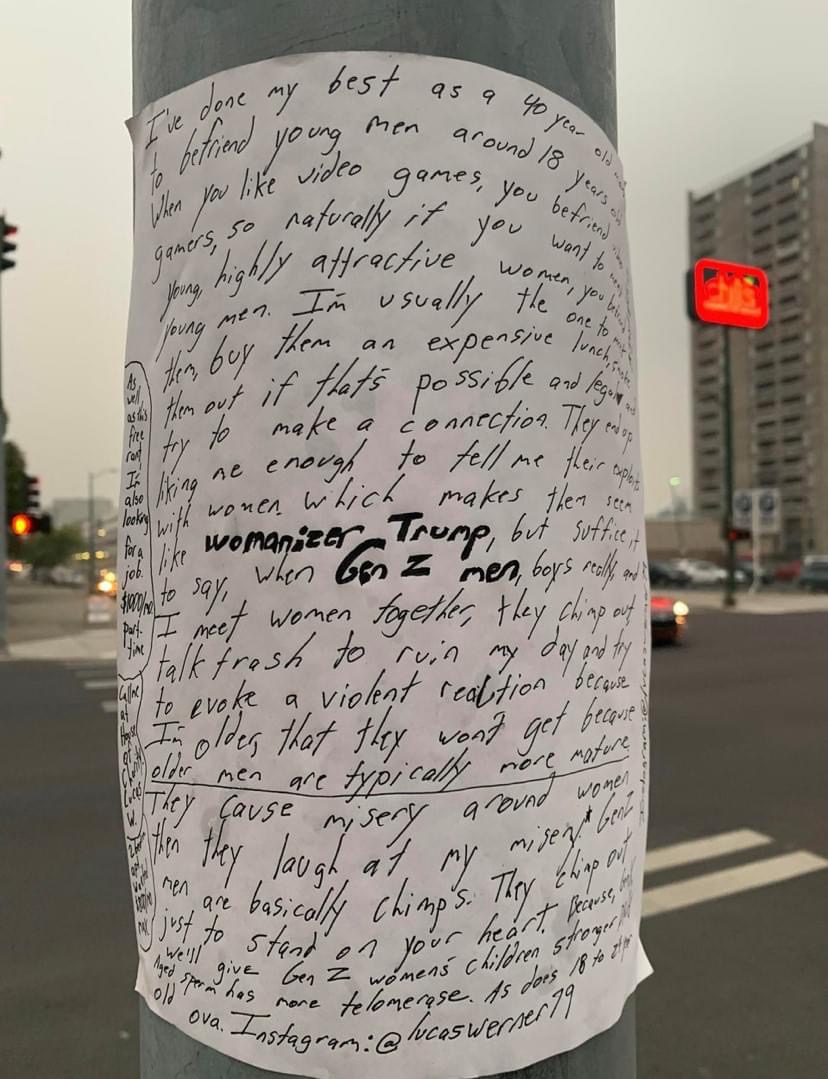 I've done my best as a 40 year old
to befriend young men around 18 years old
When you like video games, you befriend
gamers, so naturally if you want to
young, highly attractive women, you
young men. I'm usually the one to
them, buy them an expensive lunch,
them out if that's possible and legal and
try to make a connection. They end up
liking me enough to tell me their exploits
with women which makes them seem
like womanizer Trump, but suffice it
to say, when Gen Z men, boys really, and
I meet women together, they chimp out
talk trash to ruin my day and try
to evoke a violent reaction because
I'm older, that they won't get because
older men are typically more mature
They cause misery around women
then they laugh at my misery.* GenZ
men are basically chimps. They chimp out
just to stand on your heart. Because,
we'll give Gen Z women's children stronger
Aged sperm has more telomerase. As does 18 to
old ova. Instagram: @lucaswerner79
As
well
as this
free
rant
I'm
also
looking
for a
job.
$1000/mo
part-
time
Call me
at
House
of
Charity
Lucas
W.
chilis